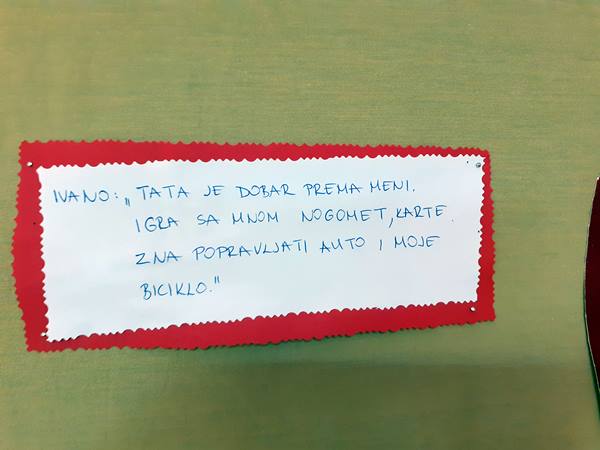 IVANO: „TATA JE DOBAR PREMA MENI.
IGRA SA MNOM NOGOMET, KARTE.
ZNA POPRAVLJATI AUTO I MOJE
BICIKLO.“